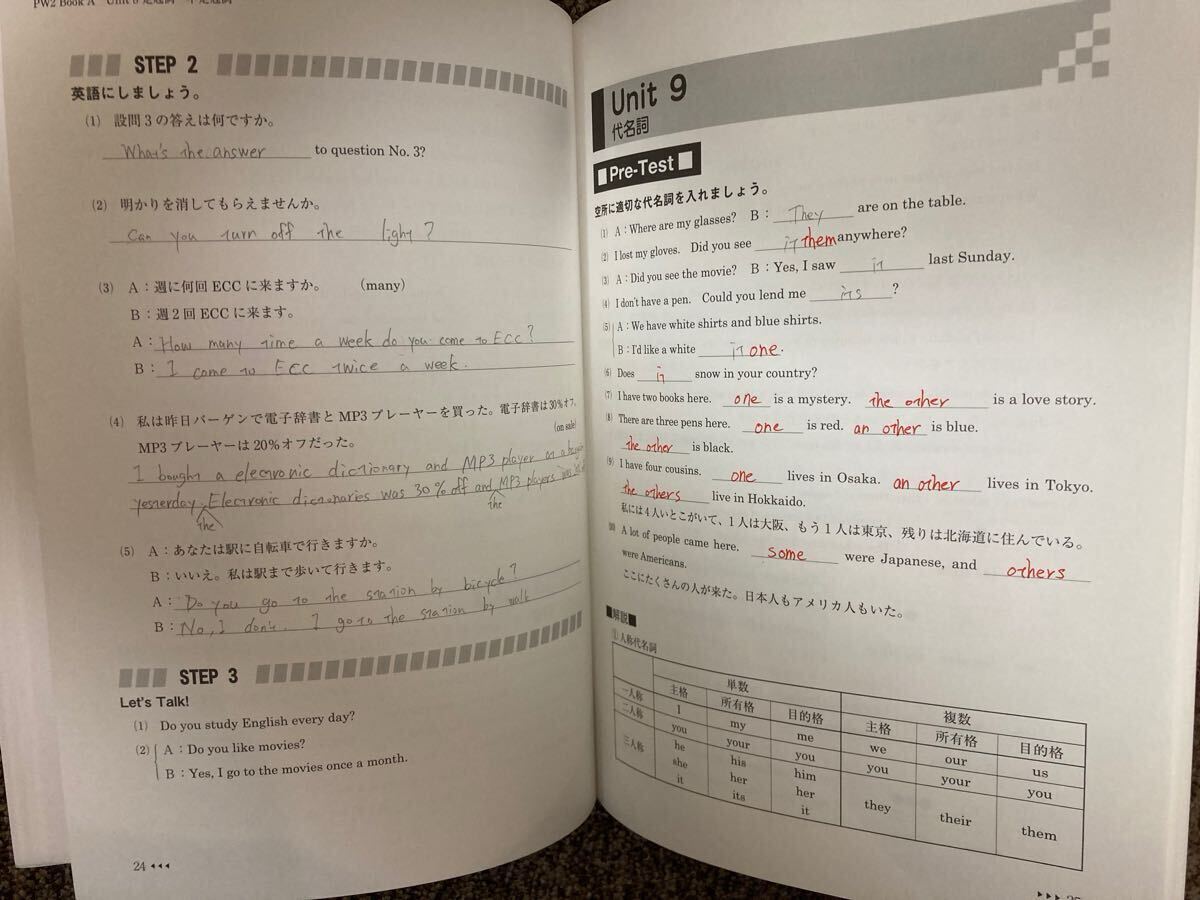 PW2 Book A Unit 8 定冠詞・不定冠詞
STEP 2
英語にしましょう。
(1) 設問3の答えは何ですか。
What's the answer to question No. 3?
(2) 明かりを消してもらえませんか。
Can you turn off the light?
(3) A：週に何回 ECC に来ますか。 (many)
B：週2回 ECC に来ます。
A：How many time a week do you come to ECC?
B：I come to ECC twice a week.
(4) 私は昨日バーゲンで電子辞書と MP3 プレーヤーを買った。電子辞書は30%オフ、
MP3プレーヤーは20%オフだった。 (on sale)
I bought a electronic dictionary and MP3 player on a
yesterday. Electronic dictionaries was 30% off and MP3 players was
the the
(5) A：あなたは駅に自転車で行きますか。
B：いいえ。私は駅まで歩いて行きます。
A：Do you go to the station by bicycle?
B：No, I don't. I go to the station by walk
STEP 3
Let's Talk!
(1) Do you study English every day?
(2) A：Do you like movies?
B：Yes, I go to the movies once a month.
24
Unit 9
代名詞
Pre-Test
空所に適切な代名詞を入れましょう。
(1) A：Where are my glasses? B：They are on the table.
(2) I lost my gloves. Did you see it them anywhere?
(3) A：Did you see the movie? B：Yes, I saw it last Sunday.
(4) I don't have a pen. Could you lend me its ?
(5) A：We have white shirts and blue shirts.
B：I'd like a white it one.
(6) Does it snow in your country?
(7) I have two books here. one is a mystery. the other is a love story.
(8) There are three pens here. one is red. an other is blue.
the other is black.
(9) I have four cousins. one lives in Osaka. an other lives in Tokyo.
the others live in Hokkaido.
私には4人いとこがいて、1人は大阪、もう1人は東京、残りは北海道に住んでいる。
(10) A lot of people came here. some were Japanese, and others
were Americans.
ここにたくさんの人が来た。日本人もアメリカ人もいた。
■解説■
①人称代名詞
単数 複数
主格 所有格 目的格 主格 所有格 目的格
一人称 I my me we our us
二人称 you your you you your you
三人称 he his him they their them
she her her
it its it